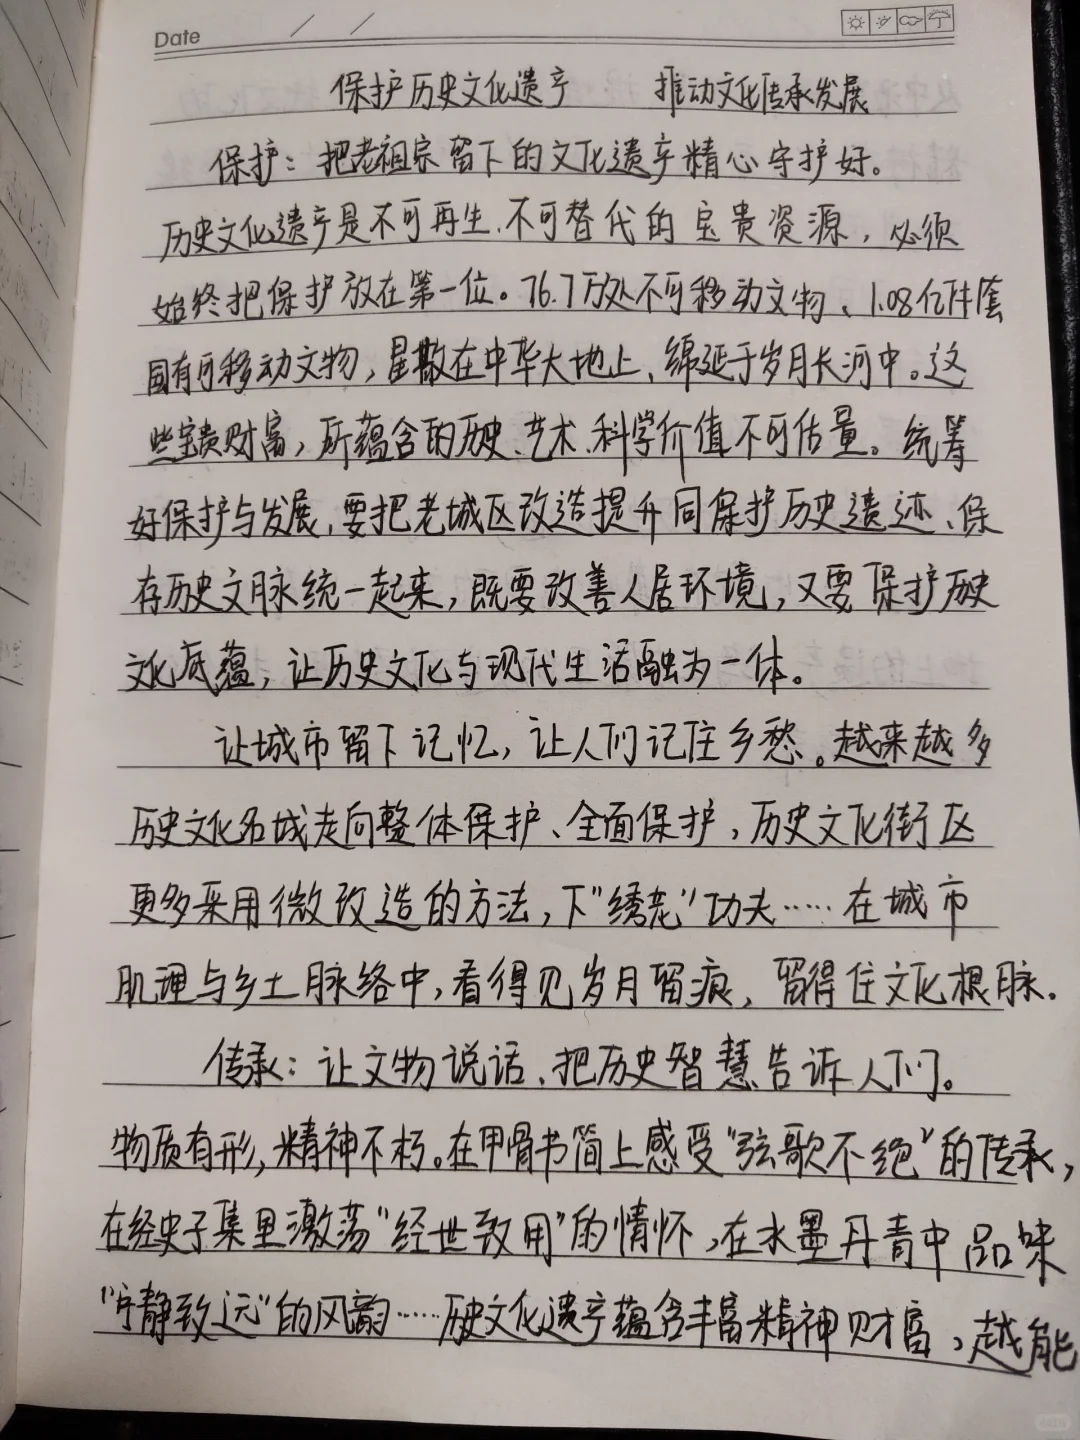 Date
保护历史文化遗产 推动文化传承发展
保护：把老祖宗留下的文化遗产精心守护好。
历史文化遗产是不可再生、不可替代的宝贵资源，必须
始终把保护放在第一位。76.7万处不可移动文物、1.08亿件套
国有可移动文物，星散在中华大地上、绵延于岁月长河中。这
些宝贵财富，所蕴含的历史、艺术、科学价值不可估量。统筹
好保护与发展，要把老城区改造提升同保护历史遗迹、保
存历史文脉统一起来，既要改善人居环境，又要保护历史
文化底蕴，让历史文化与现代生活融为一体。
让城市留下记忆，让人们记住乡愁。越来越多
历史文化名城走向整体保护、全面保护，历史文化街区
更多采用微改造的方法，下"绣花"功夫……在城市
肌理与乡土脉络中，看得见岁月留痕，留得住文化根脉。
传承：让文物说话、把历史智慧告诉人们。
物质有形，精神不朽。在甲骨书简上感受"弦歌不绝"的传承，
在经史子集里激荡"经世致用"的情怀，在水墨丹青中品味
"宁静致远"的风韵……历史文化遗产蕴含丰富精神财富，越能